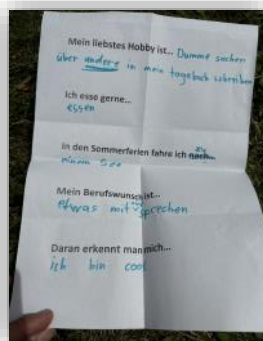 Mein liebstes Hobby ist... Dumme sachen
über andere in mein tagebuch schreiben
Ich esse gerne...
essen
In den Sommerferien fahre ich nach... an
einem See
Mein Berufswunsch ist...
etwas mit sprechen
Daran erkennt man mich...
ich bin cool